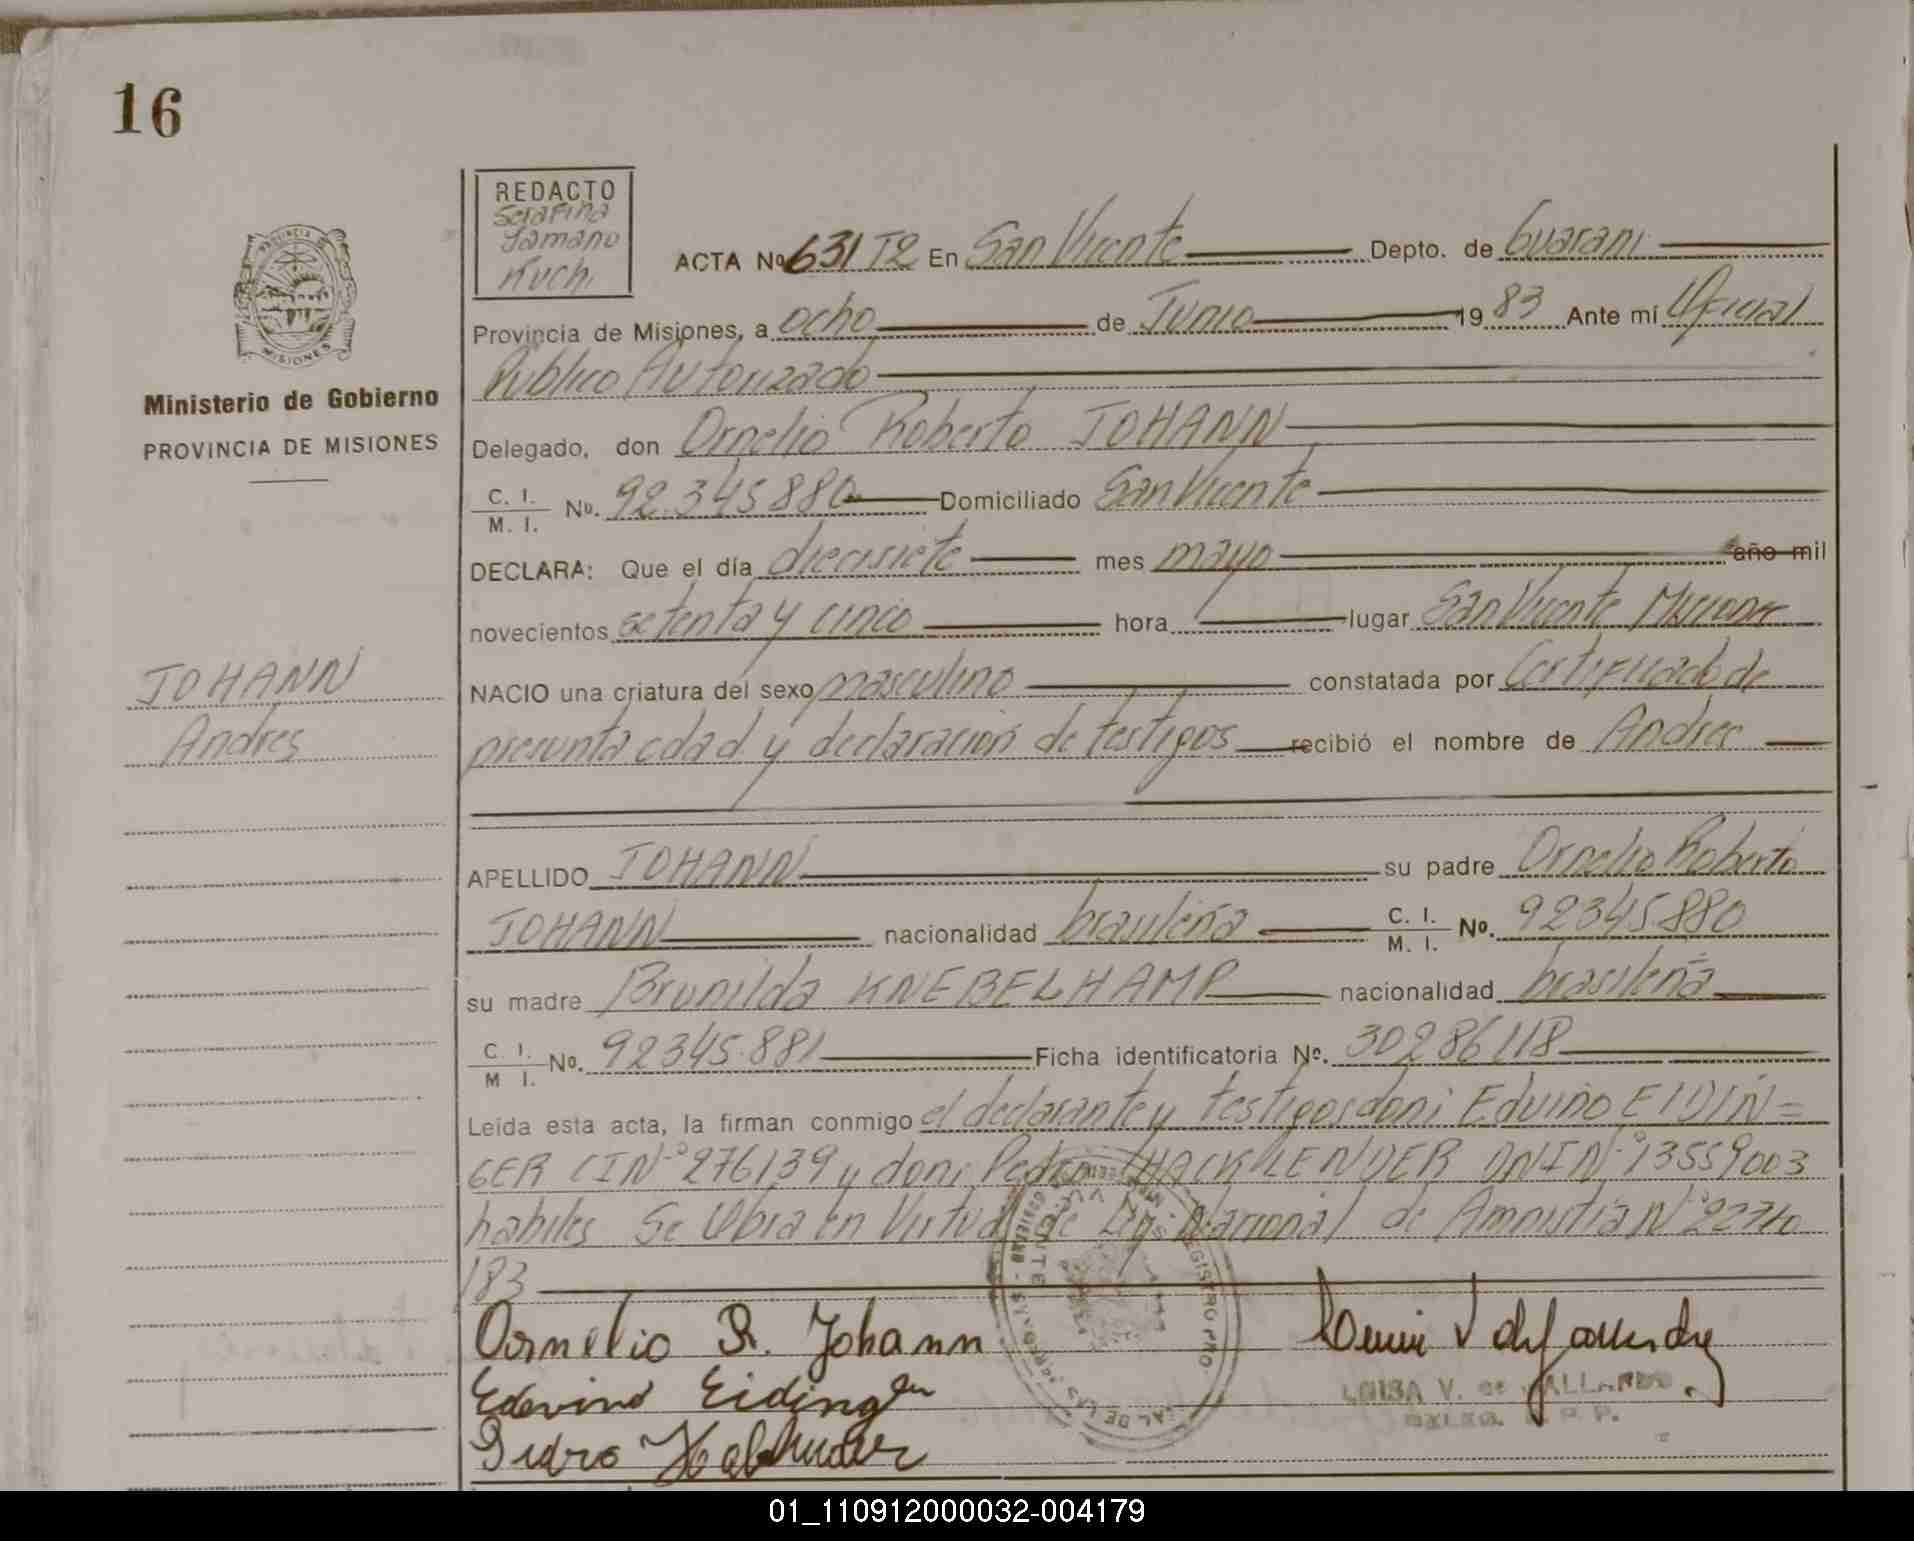 16
REDACTO
Serafina
Kuch.
PROVINCIA DE
MISIONES
Ministerio de Gobierno
PROVINCIA DE MISIONES
JOHANN
Andres
ACTA Nº 631 T2 En San Vicente Depto. de Guarani
Provincia de Misiones, a ocho de Junio 19 83 Ante mí Oficial
Publico Autorizado
Delegado, don Ornelio Roberto JOHANN
C. I. / M. I. Nº. 92.345880 Domiciliado San Vicente
DECLARA: Que el día diecisiete mes mayo año mil
novecientos setenta y cinco hora lugar San Vicente Misiones
NACIO una criatura del sexo masculino constatada por Certificado de
presunta edad y declaración de testigos recibió el nombre de Andres
APELLIDO JOHANN su padre Ornelio Roberto
JOHANN nacionalidad brasileña C. I. / M. I. Nº. 92345880
su madre Brunilda KNEBELKAMP nacionalidad brasileña
C. I. / M I. Nº. 92345.881 Ficha identificatoria Nº. 30286118
Leída esta acta, la firman conmigo el declarante y testigos don: Edvino EIDIN=
GER CIN° 276139 y don: Pedro HACKLENDER DNIN° 13559003
habiles Se Obra en Virtud de Ley Nacional de Amnistia N° 22710
/83
Ornelio R. Johann
Edevino Eidinger
Pedro
LUISA V. de GALLARDO
01_110912000032-004179